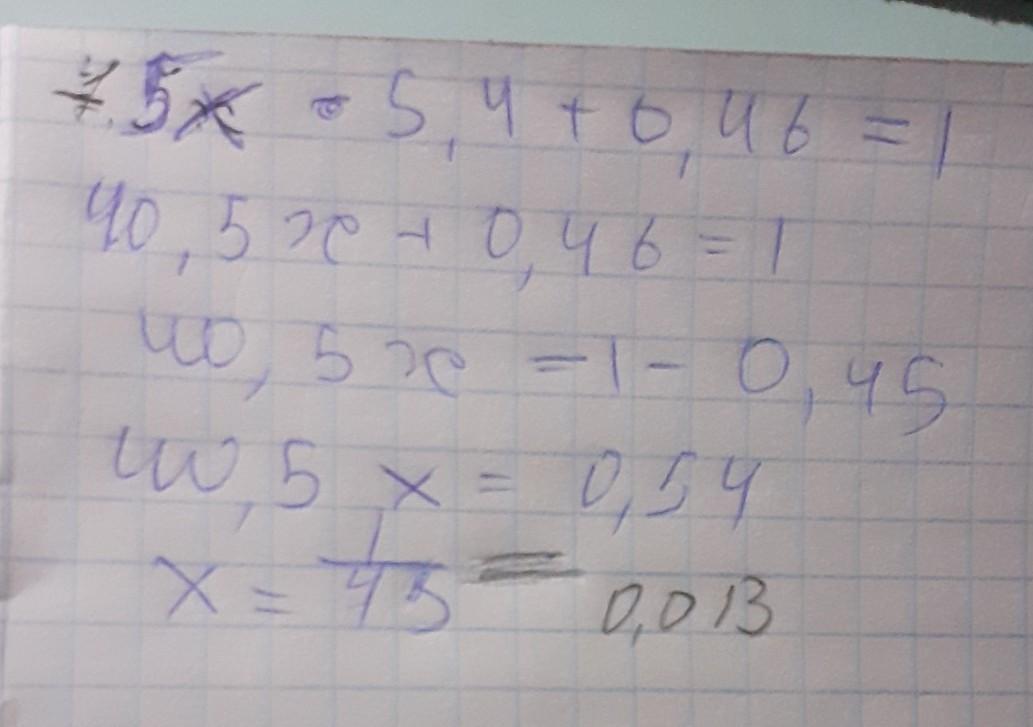 7.5x · 5,4 + 0,46 = 1
40,5x + 0,46 = 1
40,5x = 1 - 0,45
40,5x = 0,54
x = 1/45 = 0,013